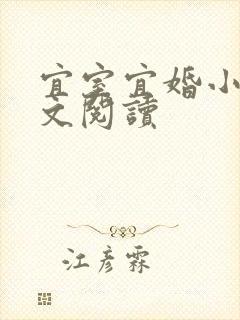 宜室宜婚小
文閱讀
江彦霖